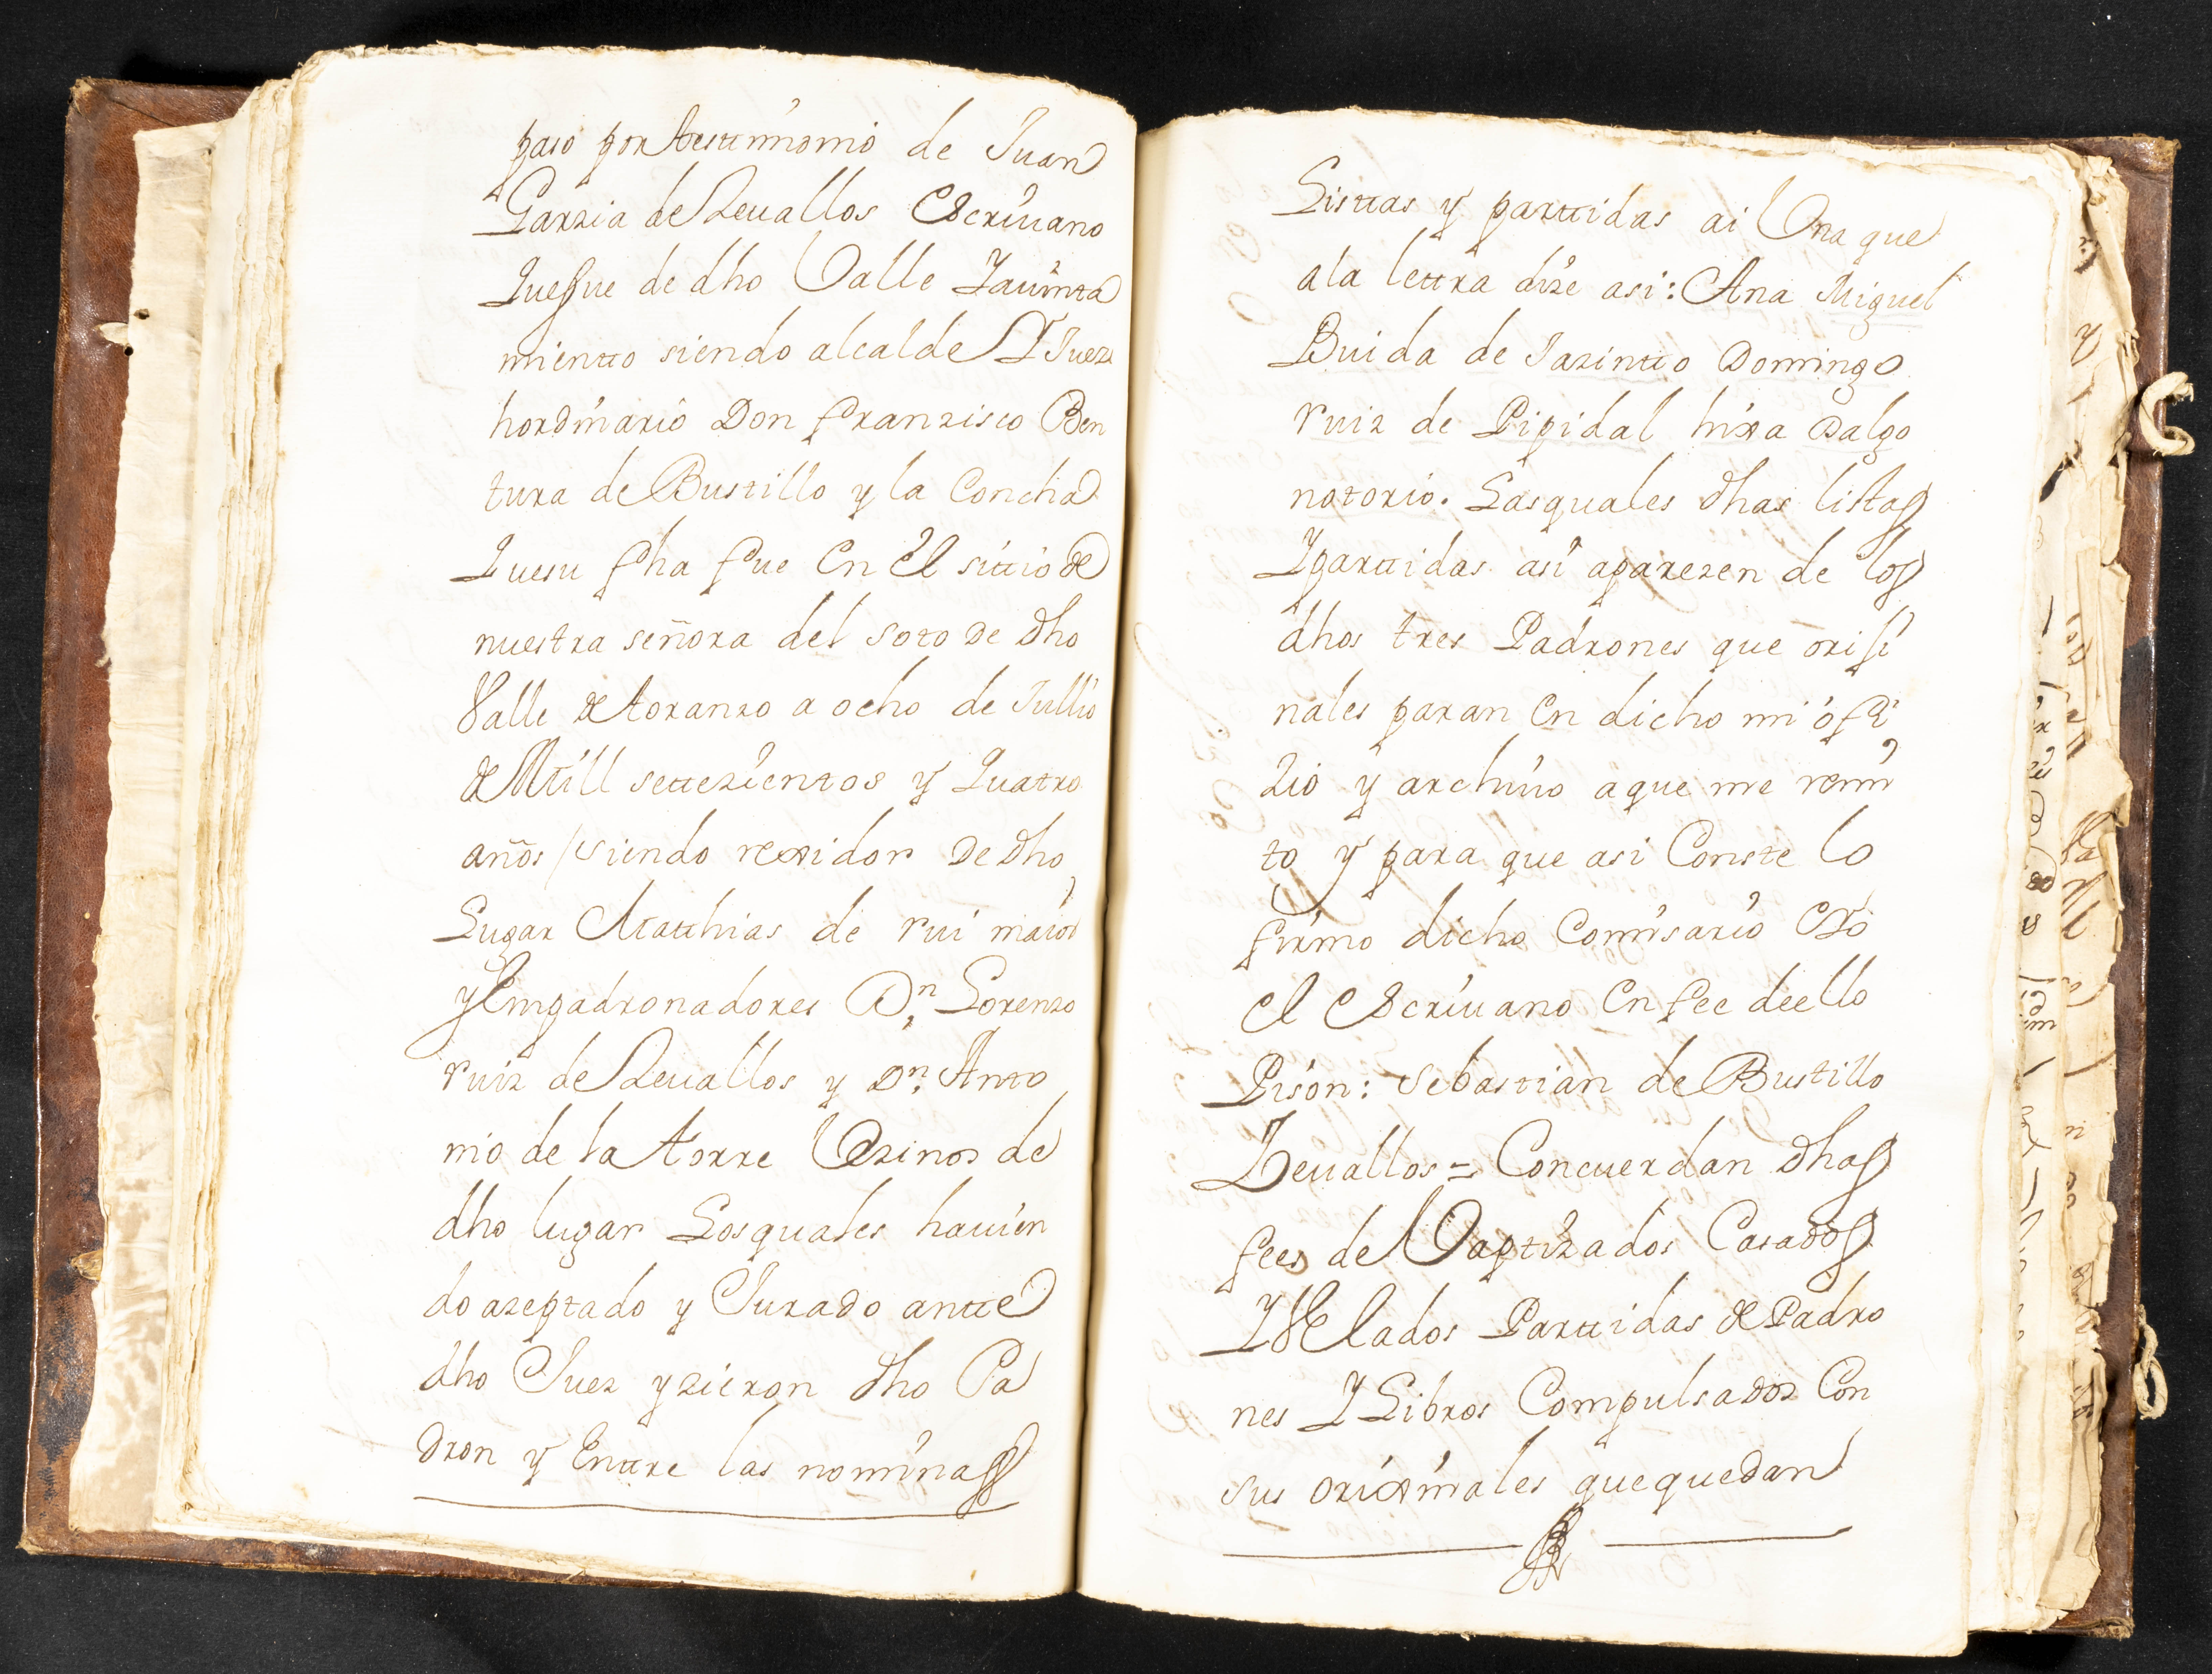 paso por testimonio de Juan
Garzia de Zeuallos Escriuano
Que fue de dho Valle Y auinta
miento siendo alcalde Y Juez
hordinario Don franzisco Ben
tura de Bustillo y la Concha
Quesu fha fue En El sittio de
nuestra señora del soto De dho
Valle de toranzo a ocho de Jullio
de Mill settezientos y Quatro
años / siendo rexidor De dho
Lugar Matthias de rui maior
y Empadronadores Dn. Lorenzo
ruiz de Zeuallos y Dn. Anto
nio de la torre Vezinos de
dho lugar Losquales hauien
do azeptado y Jurado antte
dho Juez yzieron dho Pa
dron y Enttre las nominas
Listtas y parttidas ai Vna que
ala lettra dize asi: Ana Miguel
Buida de Jazintto Domingo
ruiz de Pipidal hixa Dalgo
notorio. Lasquales dhas listas
Y parttidas asi aparezen de los
dhos tres Padrones que orisi
nales paran En dicho mi ofi
zio y archiuo aque me remi
to y para que asi Conste lo
firmo dicho Comisario E Yo
el Escriuano En fee deello
Pison: Sebastian de Bustillo
Zeuallos = Concuerdan dhas
fees de Vaptizados Casados
Y Velados Parttidas de Padro
nes Y Libros Compulsados Con
sus orixinales quequedan